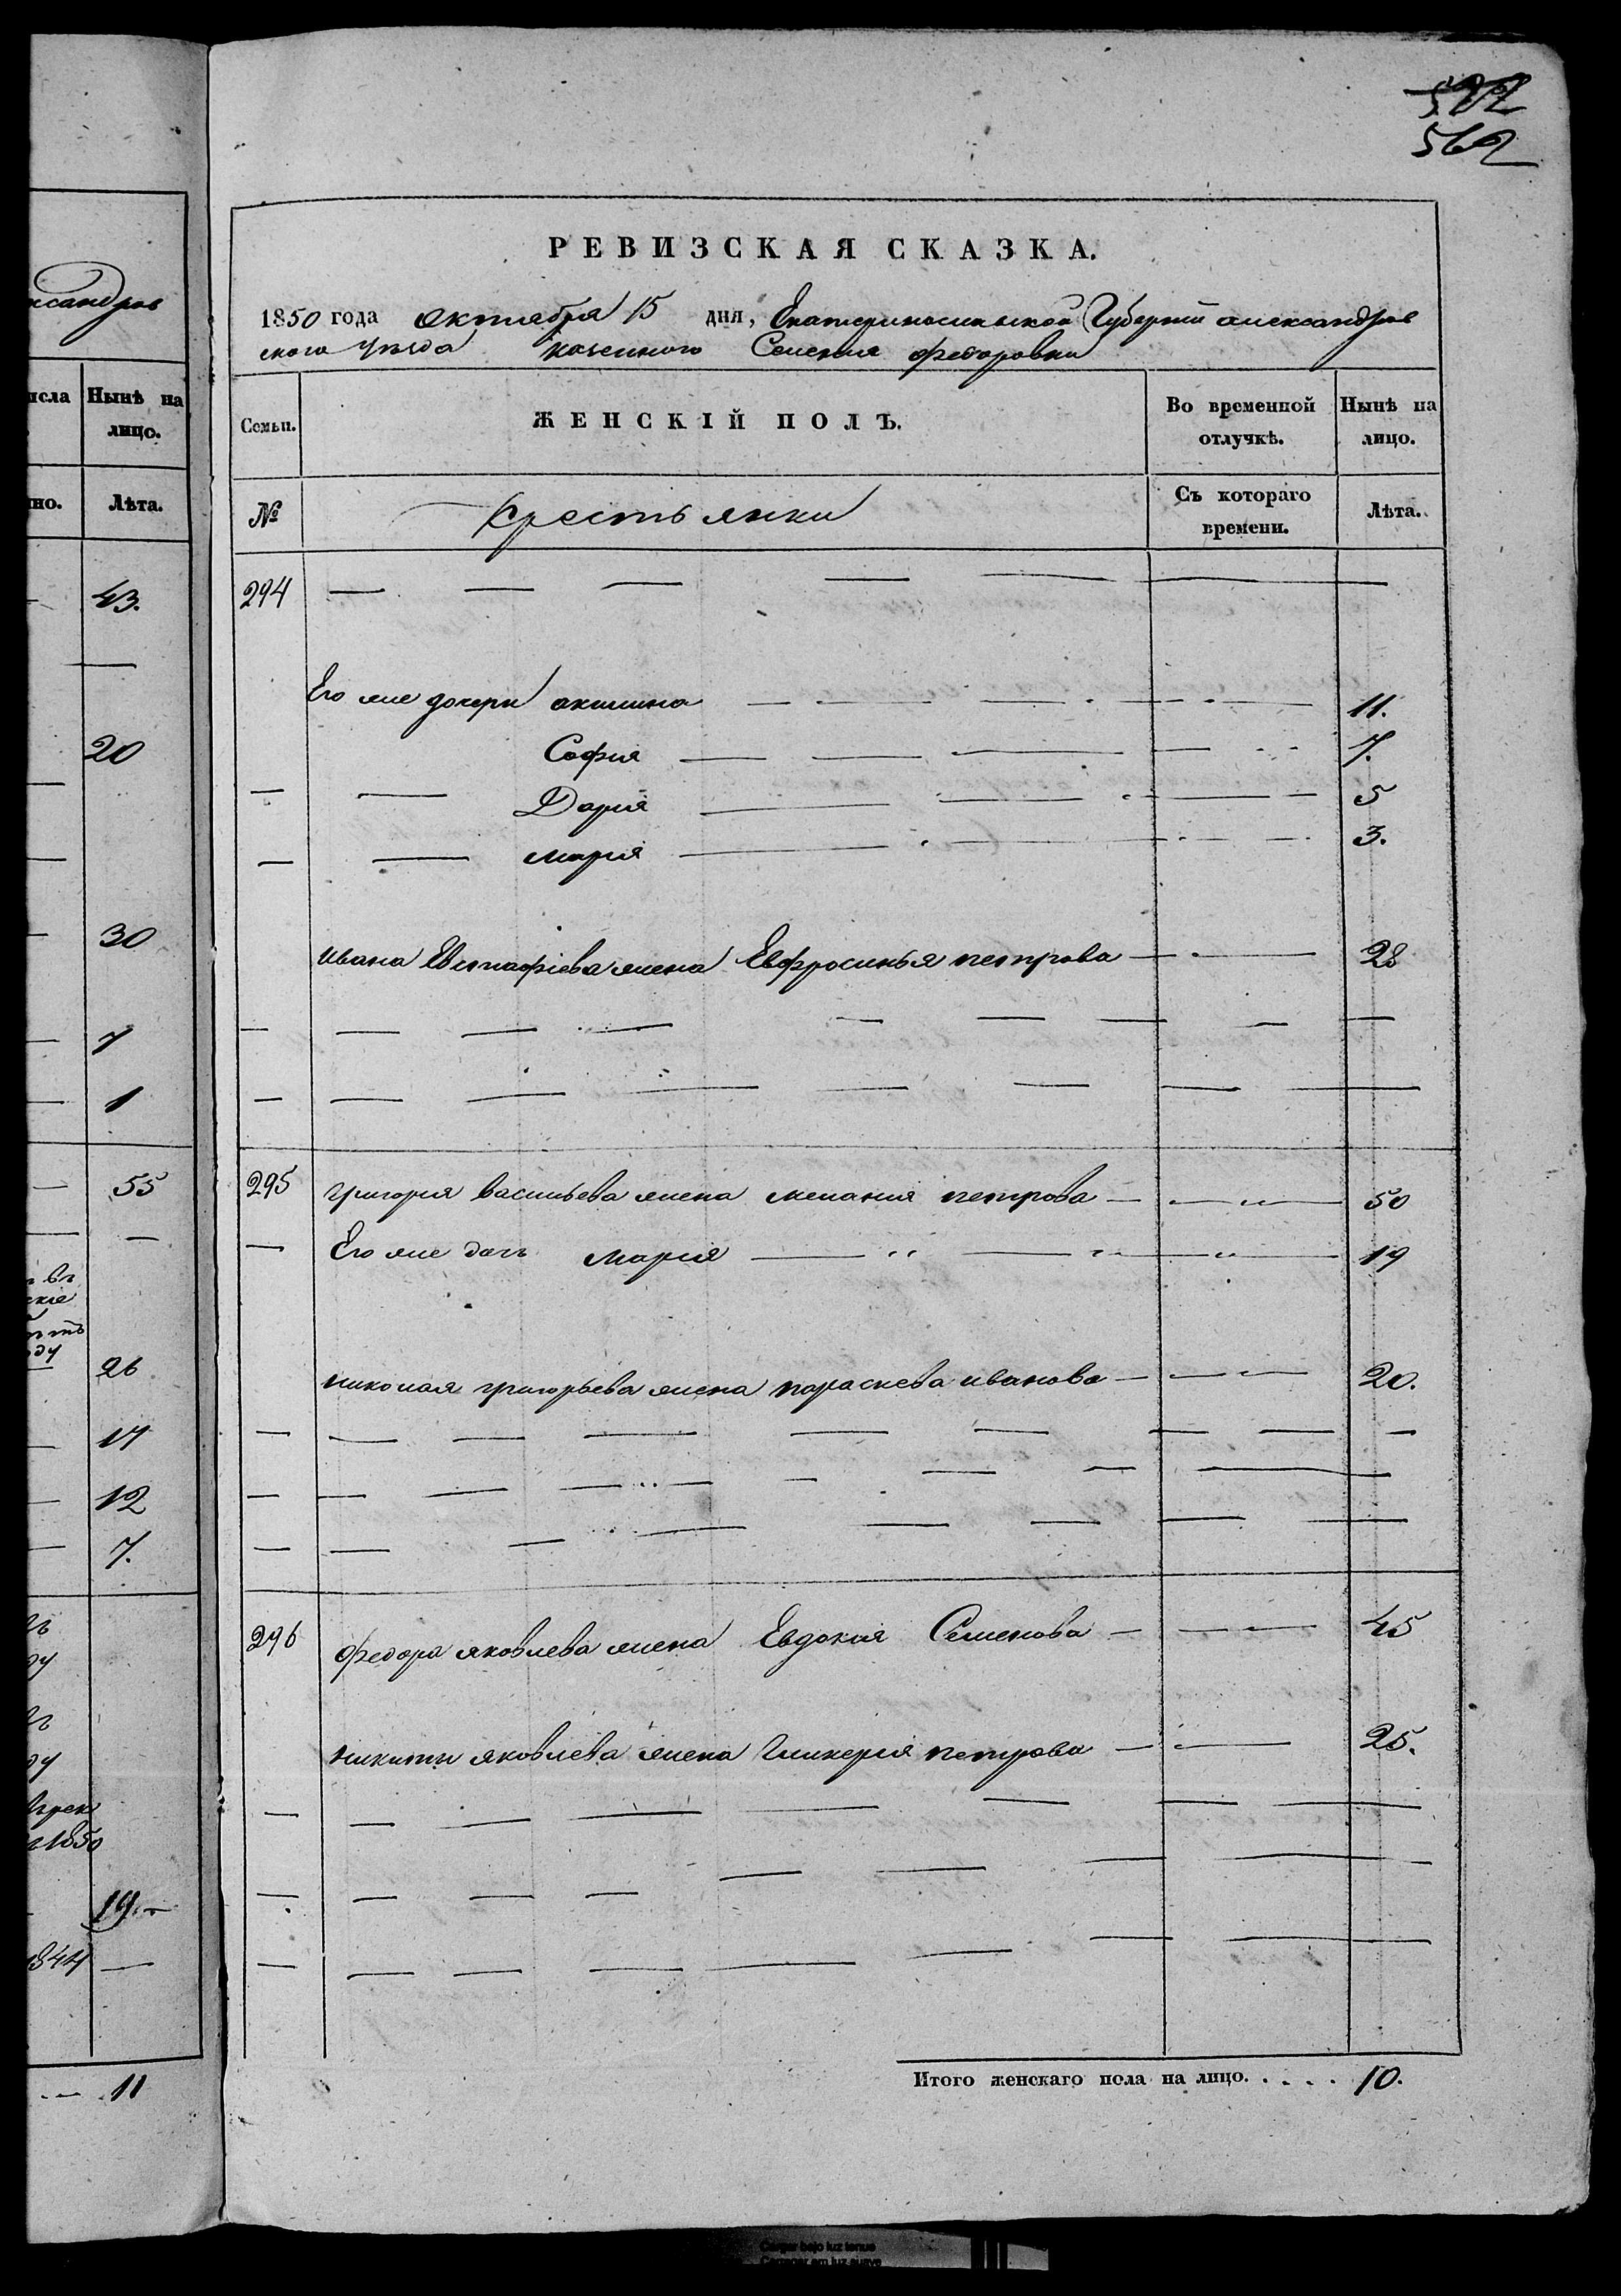 ксандров
исла Нынѣ на
лицо.
но. Лѣта.
43.
20
30
7
1
55
въ
скіе
ду
26
17
12
7.
1850
19.
1844
11
522
562
РЕВИЗСКАЯ СКАЗКА.
1850 года октября 15 дня, Екатеринославской Губерніи александров
скаго уѣзда казеннаго Селенія федоровки
Семьи. ЖЕНСКІЙ ПОЛЪ. Во временной отлучкѣ. Нынѣ на лицо.
№ крестьянки Съ котораго времени. Лѣта.
294 — — — — — — —
Его же дочери акилина — — — 11.
София — — — 7.
— — Дария — — — 5
— — мария — — — 3.
ивана Евстафіева жена Евфросинья петрова — — 28
— — — — — — — — —
— — — — — — — — —
295 григория васильева жена мелания петрова — — 50
— Его же дочь мария — — — 19
николая григорьева жена параскева иванова — — 20.
— — — — — — — — —
— — — — — — — — —
— — — — — — — — —
296 федора яковлева жена Евдокия Семенова — — 45
никиты яковлева жена гликерия петрова — — 25.
— — — — — — — — —
— — — — — — — — —
— — — — — — — — —
Итого женскаго пола на лицо. . . . . 10.